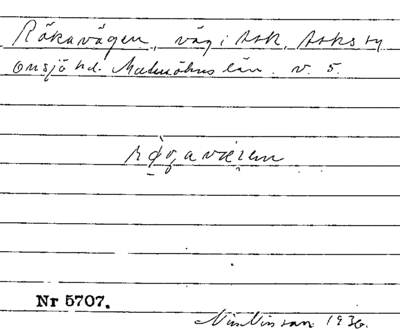 Rökavägen, väg i Ask, Asks sn
Onsjö hd. Malmöhus län. v. 5.
Nr 5707.
Nils Nilsson 1936.